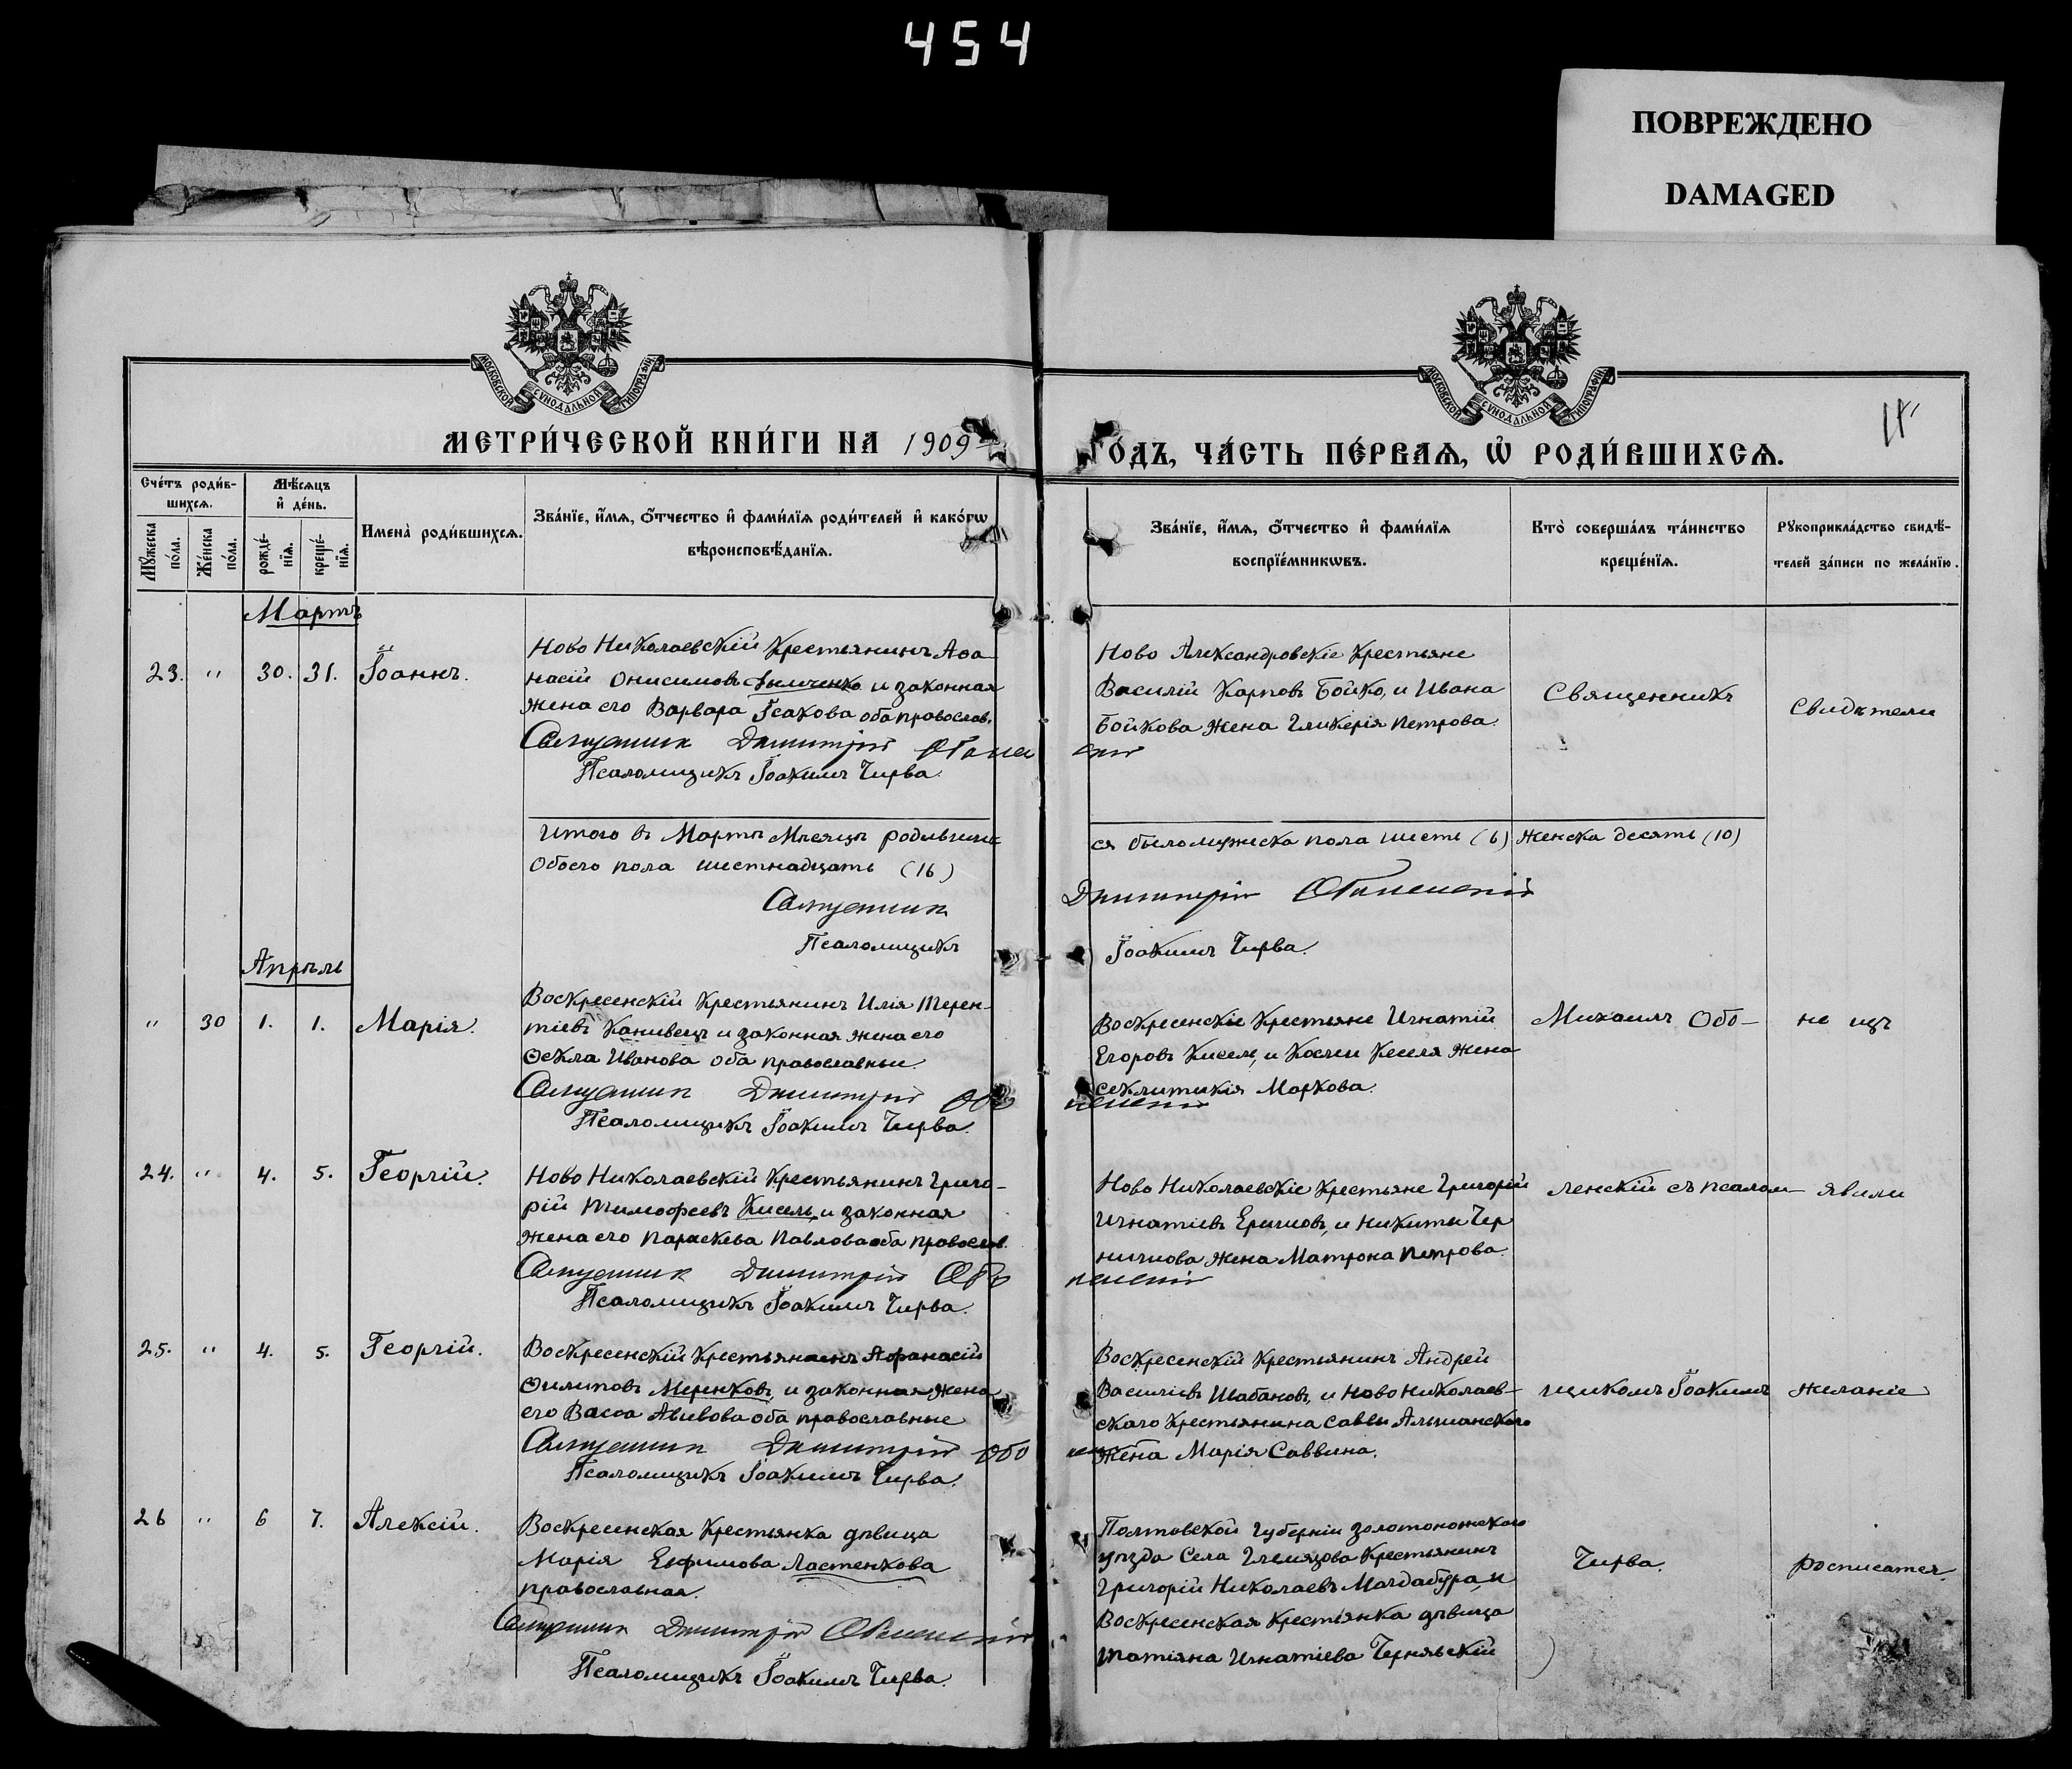 454
ПОВРЕЖДЕНО
DAMAGED
МОСКОВСКОЙ СѴНОДАЛЬНОЙ ТИПОГРАФІИ
МОСКОВСКОЙ СѴНОДАЛЬНОЙ ТИПОГРАФІИ
МЕТРИ́ЧЕСКОЙ КНИ́ГИ НА 1909
ГОДЪ, ЧА́СТЬ ПЕ́РВАѦ, Ѡ҆ РОДИ́ВШИХСѦ.
Сче́тъ роди́в-
шихсѧ.
Мѣ́сѧцъ
и҆ де́нь.
Мꙋ́жеска
по́ла.
Же́нска
по́ла.
рожде́-
нїѧ.
креще́-
нїѧ.
Имена̀ роди́вшихсѧ.
Зва́нїе, и҆́мѧ, ѻ҆́тчество и҆ фами́лїѧ роди́телей и҆ како́гѡ
вѣроисповѣ́данїѧ.
Зва́нїе, и҆́мѧ, ѻ҆́тчество и҆ фами́лїѧ
воспрїе́мникѡвъ.
Кто̀ соверша́лъ та́инство
креще́нїѧ.
Рꙋкоприкла́дство свидѣ́-
телей за́писи по жела́нїю.
Мартъ
23. " 30. 31. Іоаннъ.
Ново Николаевскій Крестьянинъ Аѳа
насій Онисимовъ и законная
жена его Варвара Ісакова оба православ.
Священник Димитрій
Псаломщикъ Іоакимъ Чирва.
Ново Александровскіе Крестьяне
Василій Карповъ Бойко, и Ивана
Бойкова жена Гликерія Петрова.
Священникъ
Свидѣтели
Итого въ Мартѣ Мѣсяцѣ родивших
Обоего пола шестнадцать (16)
ся было мужеска пола шесть (6) Женска десять (10)
Священник
Димитрій Оболенскій
Псаломщикъ
Іоакимъ Чирва.
Апрѣль
" 30 1. 1. Марія.
Воскресенскій Крестьянинъ Илія Терен-
тіевъ Канивецъ и законная жена его
Ѳекла Иванова оба православные.
Священник Димитрій Обо
ленскій
Псаломщикъ Іоакимъ Чирва.
Воскресенскіе Крестьяне Игнатій
Егоровъ Кисель, и жена
Маркова.
Михаилъ Обо-
не изъ
24. " 4. 5. Георгій.
Ново Николаевскій Крестьянинъ Григо-
рій Тимофеевъ Кисель, и законная
жена его Параскева Павлова оба православ.
Священник Димитрій Обо
ленскій
Псаломщикъ Іоакимъ Чирва.
Ново Николаевскіе Крестьяне Григорій
Игнатіевъ и Никиты Чер
жена Матрона Петрова.
ленскій съ псалом-
явили
25. " 4. 5. Георгій.
Воскресенскій Крестьянинъ Афанасій
Ѳилиповъ Меренковъ, и законная жена
его Васса оба православные
Священник Димитрій Обо
Псаломщикъ Іоакимъ Чирва.
Воскресенскій Крестьянинъ Андрей
Василіевъ Шабановъ, и Ново Николаев-
скаго Крестьянина Саввы
жена Марія Саввина.
щикомъ Іоакимъ
желаніе
26 " 6 7. Алексій.
Воскресенская Крестьянка дѣвица
Марія Евфимова Ластенкова
православная.
Священник Димитрій Оболенскій
Псаломщикъ Іоакимъ Чирва.
Полтовской Губерніи золотоношскаго
уѣзда Села Гелмязова Крестьянинъ
Григорій Николаевъ Магдабура, и
Воскресенская Крестьянка дѣвица
Татіана Игнатіева
Чирва.
росписатся.